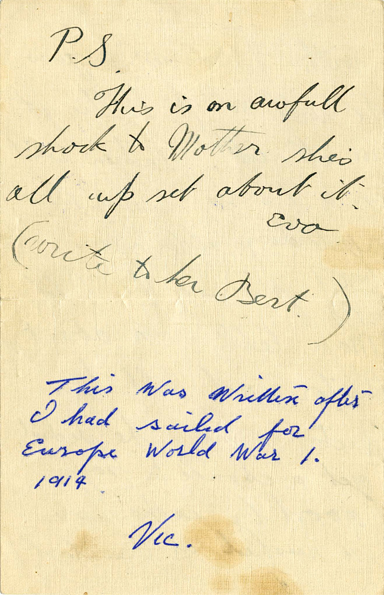 P.S.
This is an awfull
shock to Mother she's
all up set about it.
Eva
(write to her Bert.)
This was written after
I had sailed for
Europe World War 1.
1914
Vic.